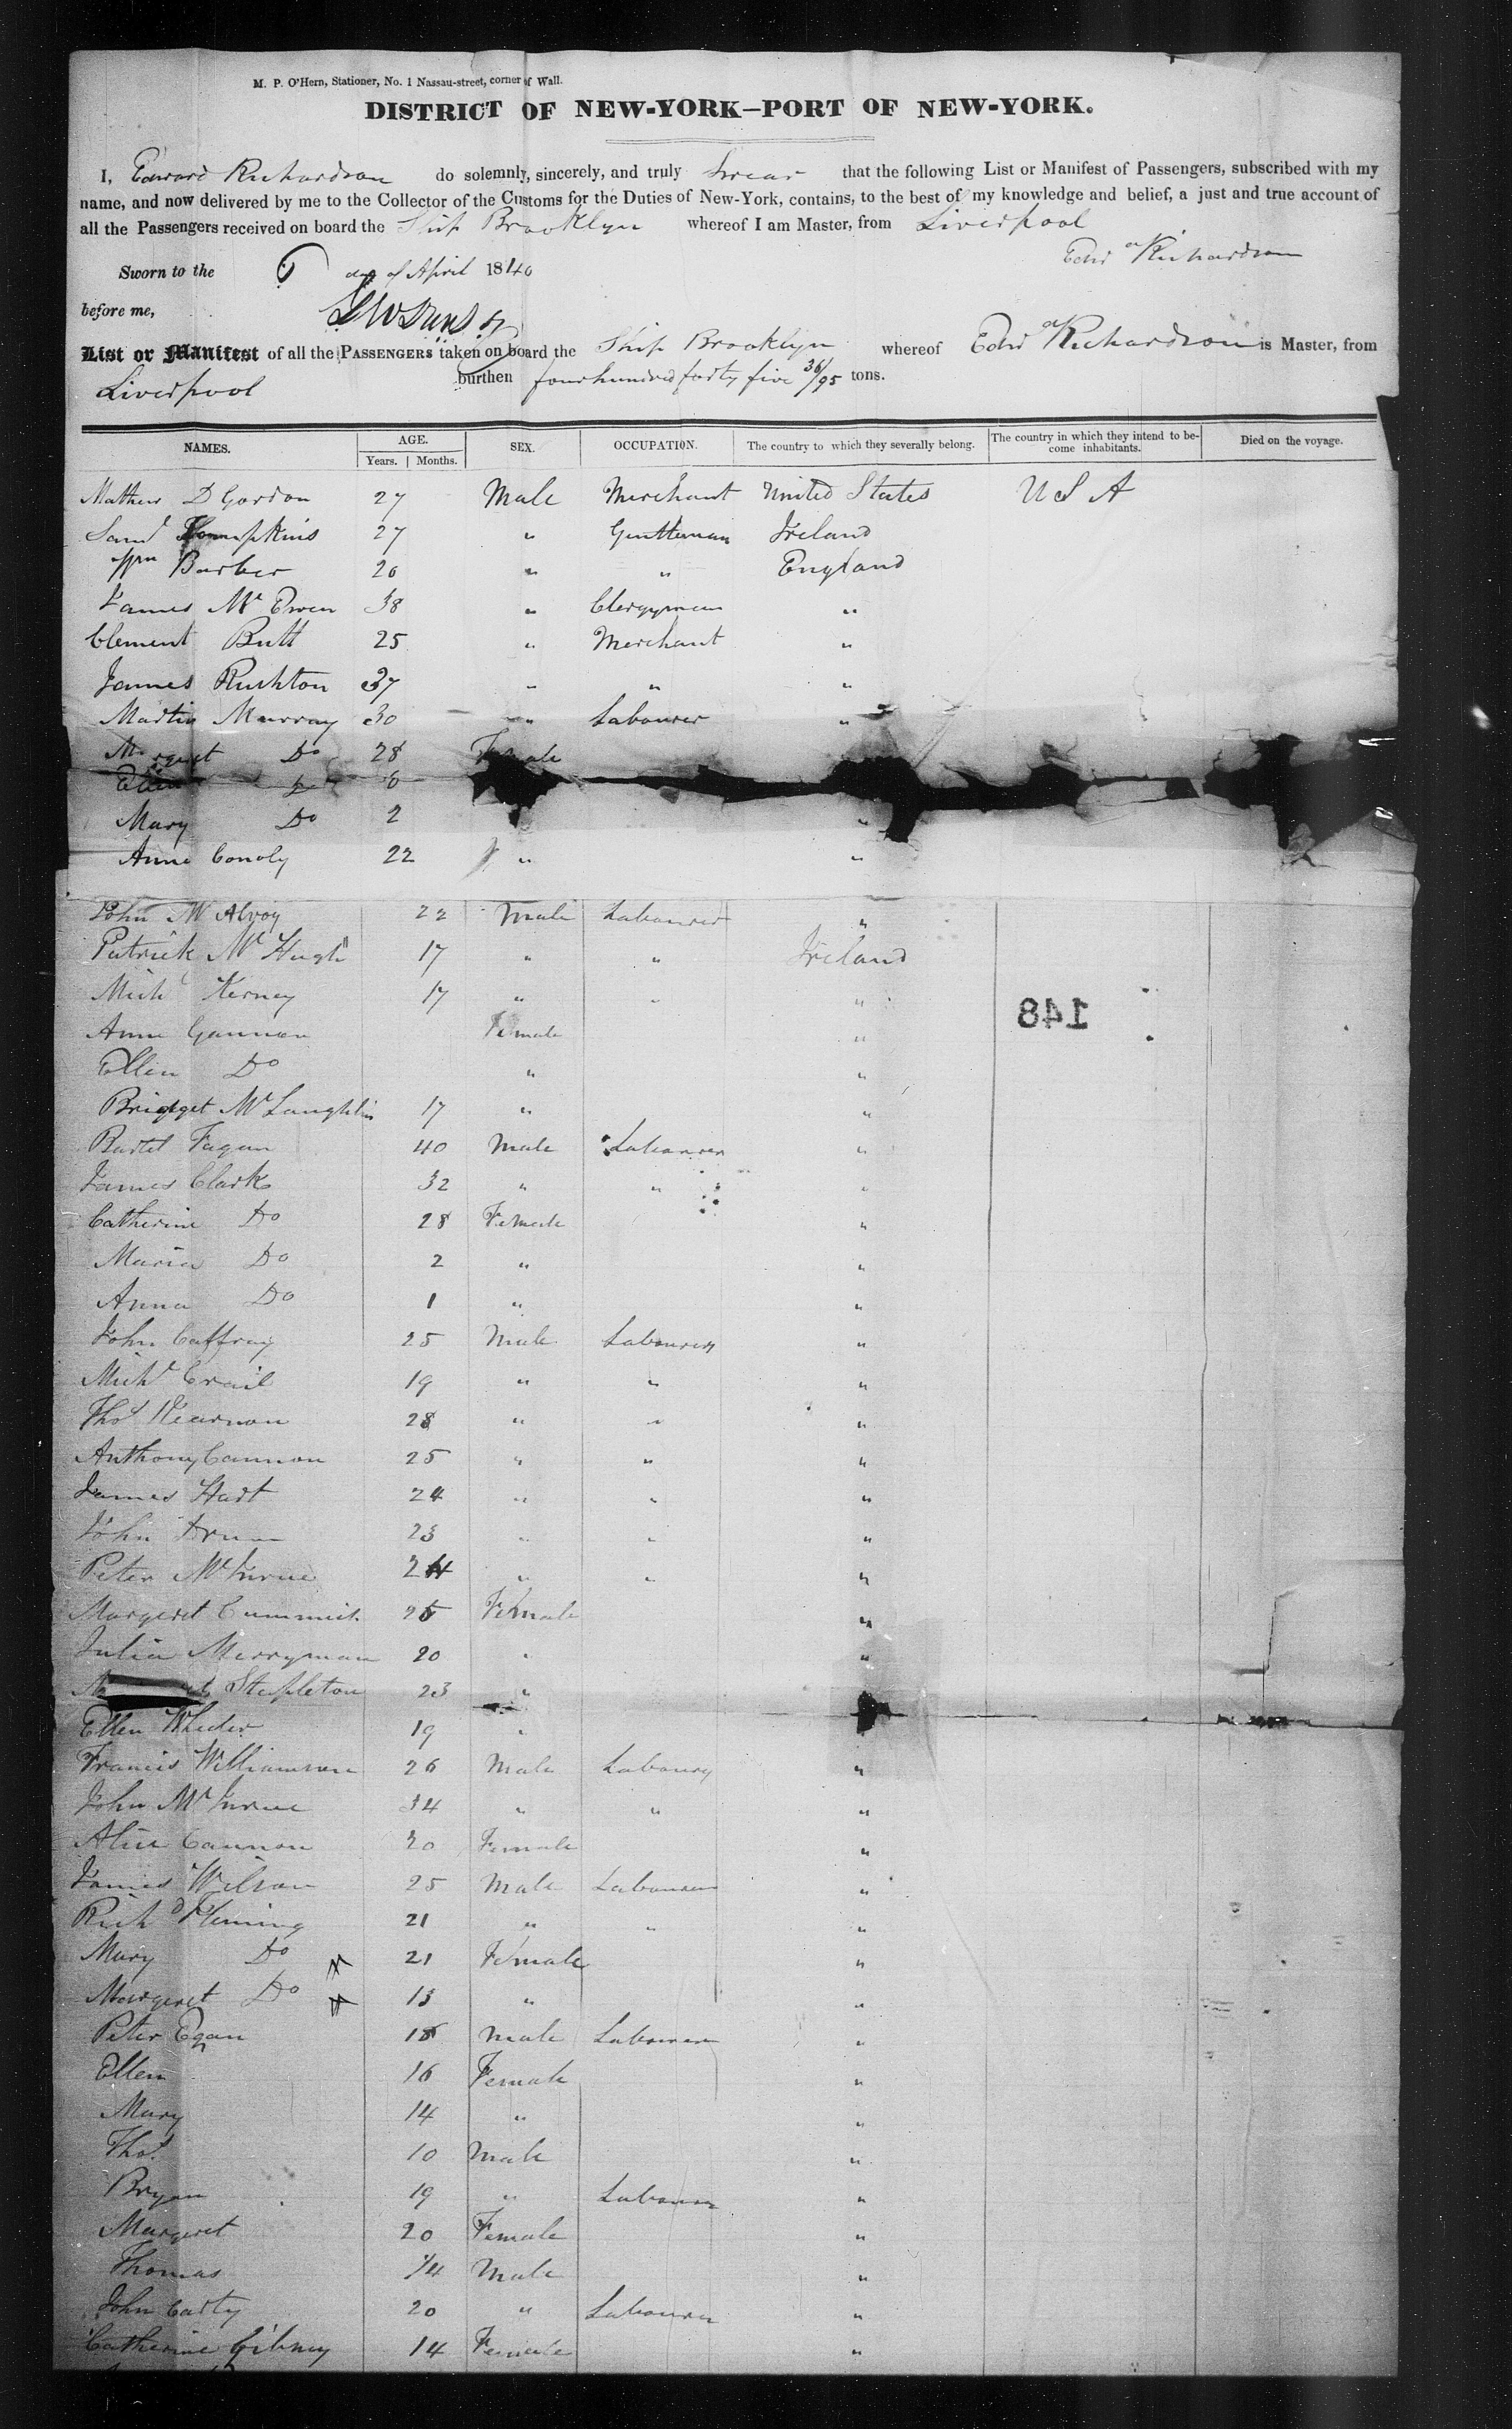 M. P. O'Hern, Stationer, No. 1 Nassau-street, corner of Wall.
DISTRICT OF NEW-YORK—PORT OF NEW-YORK.
I, Edward Richardson do solemnly, sincerely, and truly Swear that the following List or Manifest of Passengers, subscribed with my
name, and now delivered by me to the Collector of the Customs for the Duties of New-York, contains, to the best of my knowledge and belief, a just and true account of
all the Passengers received on board the Ship Brooklyn whereof I am Master, from Liverpool
Edwd Richardson
Sworn to the 6 day of April 1840
before me,
List or Manifest of all the PASSENGERS taken on board the Ship Brooklyn whereof Edwd Richardson is Master, from
Liverpool burthen four hundred forty five 36/95 tons.
NAMES. AGE. Years. Months. SEX. OCCUPATION. The country to which they severally belong. The country in which they intend to become inhabitants. Died on the voyage.
Mathew D Gordon 27 Male Merchant United States U S A
Saml Thompkins 27 " Gentleman Ireland
Wm Barber 26 " " England
James Mc Ewen 38 " Clergyman "
Clement Butt 25 " Merchant "
James Rushton 37 " " "
Martin Murray 30 " Labourer "
Margaret Do 28 Female
Ellen Do 6
Mary Do 2 "
Anne Conoly 22 " "
John Mc Alroy 22 Male Labourer "
Patrick Mc Hugh 17 " " Ireland
Michl Kerney 17 " " "
148
Anne Gannon Female "
Ellen Do " "
Bridget Mc Laughlin 17 " "
Bartel Fagan 40 Male Labourer "
James Clark 32 " " "
Catherine Do 28 Female "
Maria Do 2 " "
Anna Do 1 " "
John Caffray 25 Male Labourer "
Michl Crail 19 " " "
Thos Kearnon 28 " " "
Anthony Cannon 25 " " "
James Hart 24 " " "
John Drum 23 " " "
Peter Mc 24 " " "
Margeret 25 Female "
Julia Merryman 20 " "
Stapleton 23 "
Ellen Wheeler 19 " "
Francis Williamson 26 Male Labourer "
John Mc 34 " " "
Alice Cannon 20 Female "
James Wilson 25 Male Labourer "
Richd Fleming 21 " " "
Mary Do 21 Female "
Margeret Do 13 " "
Peter Egan 18 Male Labourer "
Ellen 16 Female "
Mary 14 " "
Thos 10 Male "
Bryan 19 " Labourer "
Margeret 20 Female "
Thomas 1/4 Male "
John Carty 20 " Labourer "
Catherine Gibney 14 Female "